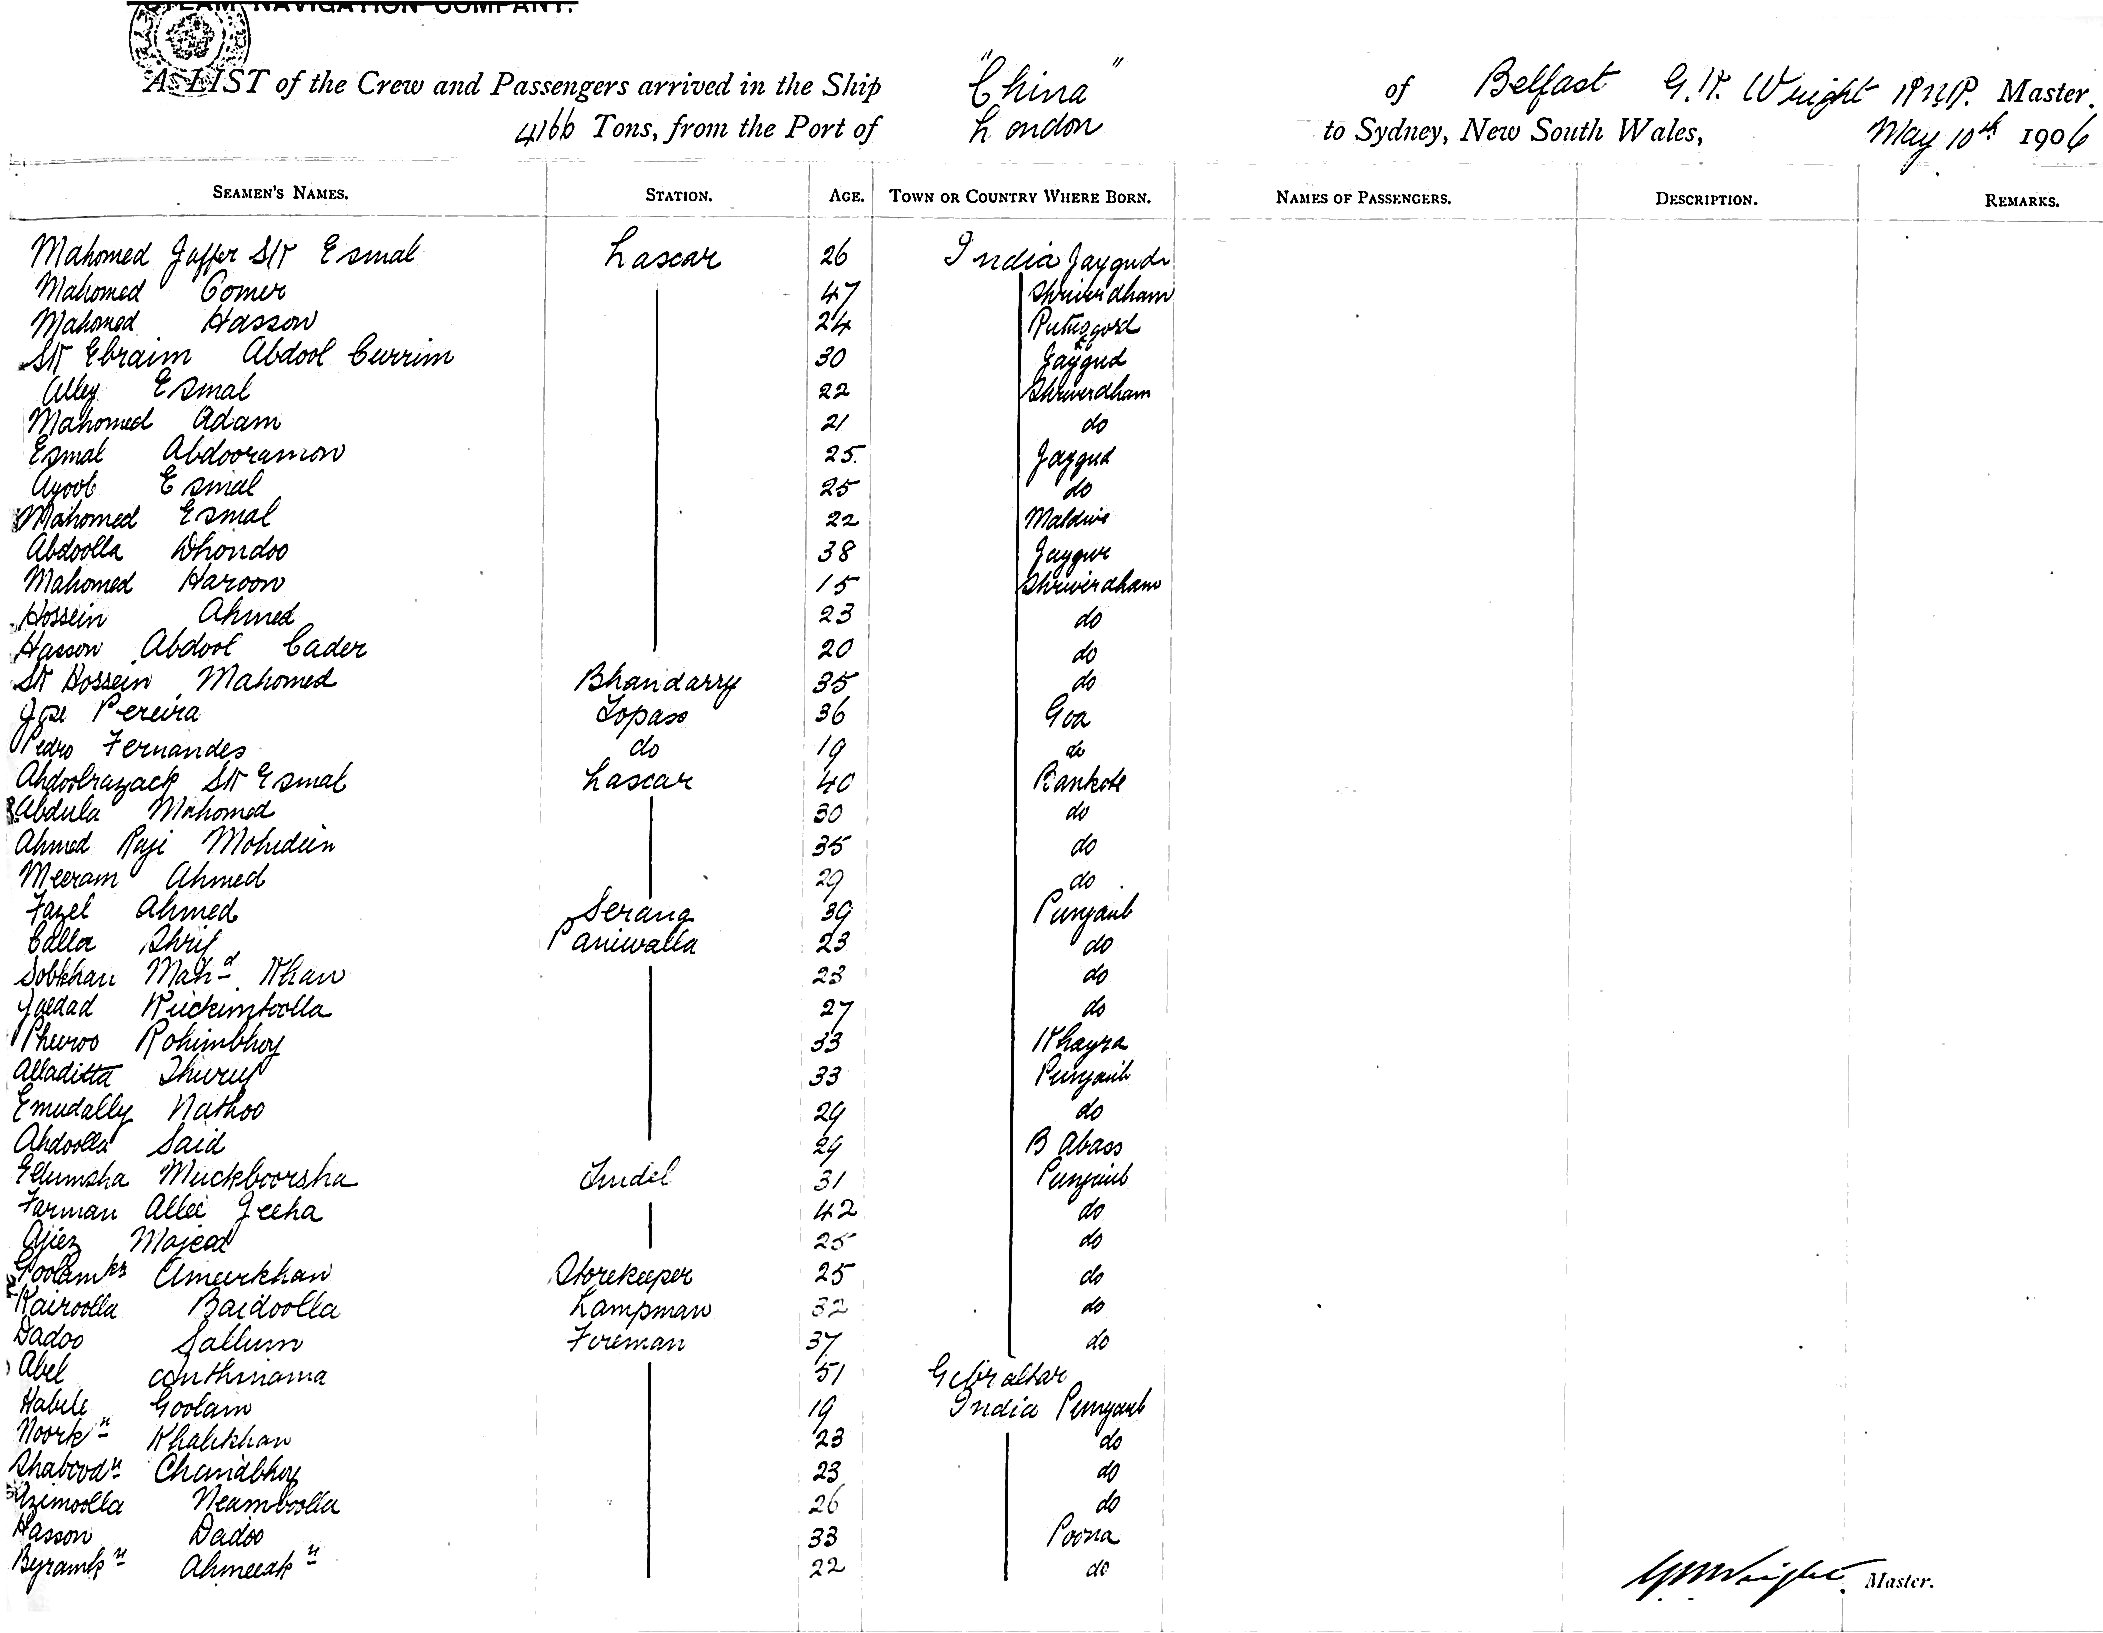 STEAM NAVIGATION COMPANY.
A LIST of the Crew and Passengers arrived in the Ship "China" of Belfast G. W. Wright Master.
4166 Tons, from the Port of London to Sydney, New South Wales, May 10th 1906
SEAMEN'S NAMES. STATION. AGE. TOWN OR COUNTRY WHERE BORN. NAMES OF PASSENGERS. DESCRIPTION. REMARKS.
Mahomed Jaffer Sk Esmal Lascar 26 India
Mahomed Oomer 47 Shriverdham
Mahomed Hasson 24
Sk Ebraim Abdool Currim 30 Jaygud
Alley Esmal 22 Shriverdham
Mahomed Adam 21 do
Esmal Abdooramon 25 Jaygud
Ayoob Esmal 25 do
Mahomed Esmal 22
Abdoolla Dhondoo 38
Mahomed Haroon 15 Shriverdham
Hossein Ahmed 23 do
Hasson Abdool Cader 20 do
Sk Hossein Mahomed Bhandarry 35 do
Jose Pereira Topass 36 Goa
Pedro Fernandes do 19 do
Abdoolrazack Sk Esmal Lascar 40 Bankote
Abdula Mahomed 30 do
Ahmed Raji Mohidein 35 do
Meeram Ahmed 29 do
Fazel Ahmed Serang 39 Punjaub
Calla Shrif Paniwalla 23 do
Sobkhan Mahd. Khan 23 do
27 do
Rohimbhoy 33 Khayra
Alladitta 33 Punjaub
Emudally Nathoo 29 do
Abdoolla Said 29 B Abass
Muckboorsha Tindel 31 Punjaub
Farman Allee Jeeha 42 do
Ajiez Majeed 25 do
Ameerkhan Storekeeper 25 do
Kairoolla Baidoolla Lampman 32 do
Dadoo Sallum Fireman 37 do
Abel 51 Gibraltar
Habile Goolam 19 India Punjaub
Noorkn Khalikhan 23 do
Shaboodn Chandbhoy 23 do
Azimoolla Neamboolla 26 do
Hasson Dadoo 33 Poona
Byramkn 22 do
G W Wright Master.